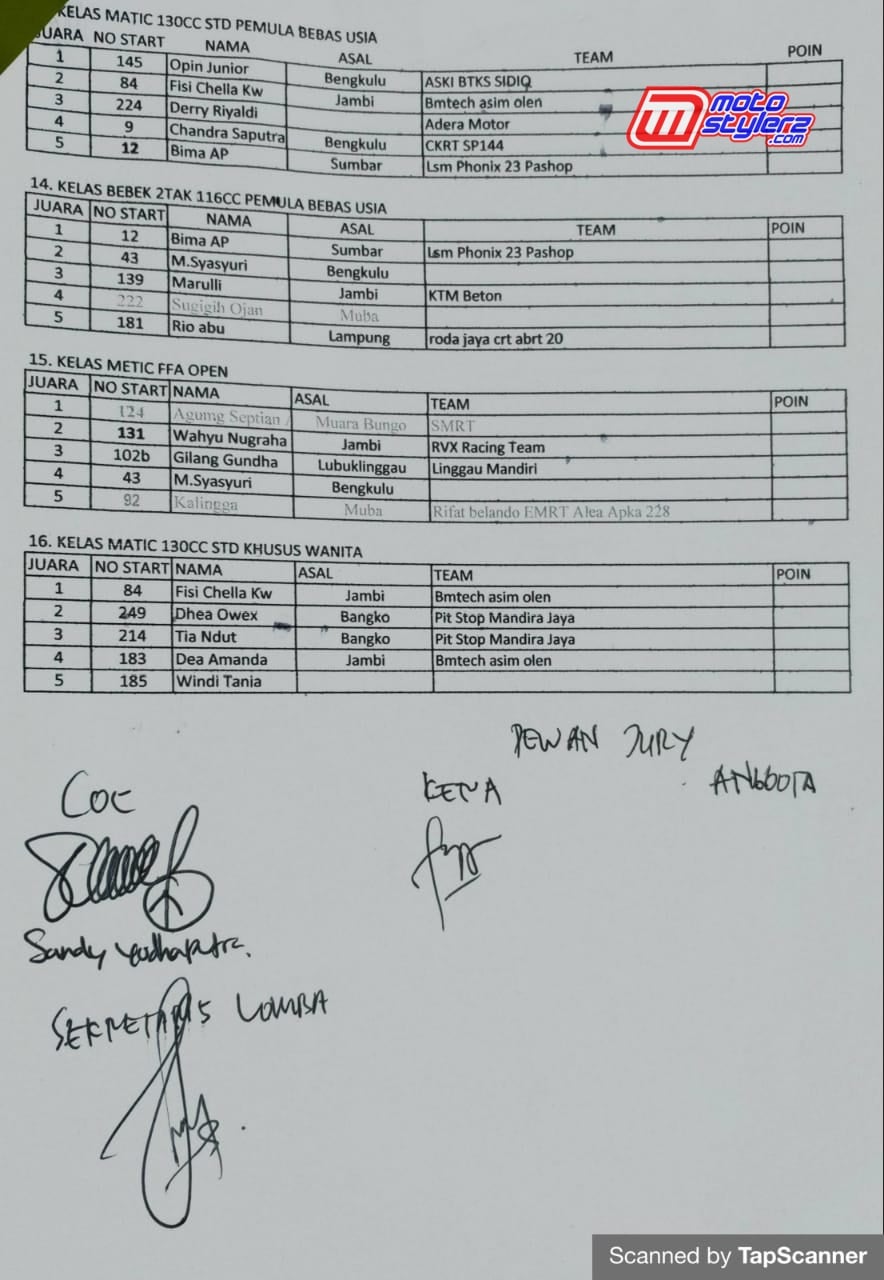 KELAS MATIC 130CC STD PEMULA BEBAS USIA
JUARA NO START NAMA ASAL TEAM POIN
1 145 Opin Junior Bengkulu ASKI BTKS SIDIQ
2 84 Fisi Chella Kw Jambi Bmtech asim olen
3 224 Derry Riyaldi Adera Motor
4 9 Chandra Saputra Bengkulu CKRT SP144
5 12 Bima AP Sumbar Lsm Phonix 23 Pashop
moto stylerz .com
14. KELAS BEBEK 2TAK 116CC PEMULA BEBAS USIA
JUARA NO START NAMA ASAL TEAM POIN
1 12 Bima AP Sumbar Lsm Phonix 23 Pashop
2 43 M.Syasyuri Bengkulu
3 139 Marulli Jambi KTM Beton
4 222 Sugigih Ojan Muba
5 181 Rio abu Lampung roda jaya crt abrt 20
15. KELAS METIC FFA OPEN
JUARA NO START NAMA ASAL TEAM POIN
1 124 Agumg Septian A Muara Bungo SMRT
2 131 Wahyu Nugraha Jambi RVX Racing Team
3 102b Gilang Gundha Lubuklinggau Linggau Mandiri
4 43 M.Syasyuri Bengkulu
5 92 Kalingga Muba Rifat belando EMRT Alea Apka 228
16. KELAS MATIC 130CC STD KHUSUS WANITA
JUARA NO START NAMA ASAL TEAM POIN
1 84 Fisi Chella Kw Jambi Bmtech asim olen
2 249 Dhea Owex Bangko Pit Stop Mandira Jaya
3 214 Tia Ndut Bangko Pit Stop Mandira Jaya
4 183 Dea Amanda Jambi Bmtech asim olen
5 185 Windi Tania
DEWAN JURY
COC KETUA ANGGOTA
Sandy Yudhaputra.
SEKRETARIS LOMBA
Scanned by TapScanner